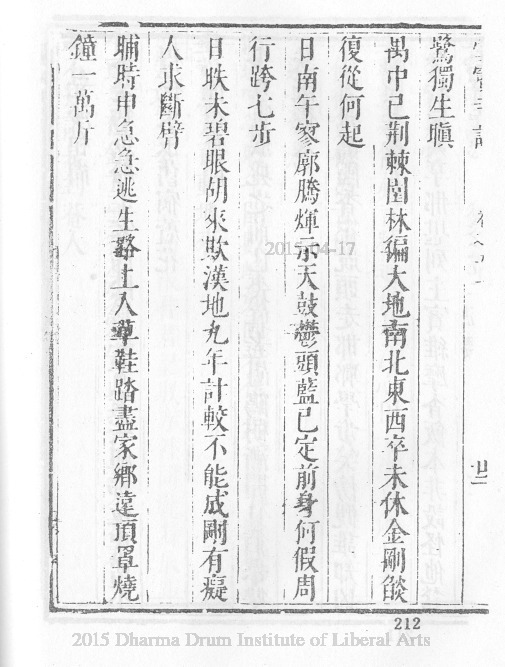 驚獨生瞋
禺中巳荆棘園林徧大地南北東西卒未休金剛燄
復從何起
日南午寥廓騰煇示天鼓鬱頭藍已定前身何假周
行跨七步
日昳未碧眼胡來欺漢地九年計較不能成剛有癡
人求斷臂
晡時申急急逃生路上人草鞋踏盡家鄉違頂罩燒
鐘一萬斤
2015-04-17
212
2015 Dharma Drum Institute of Liberal Arts